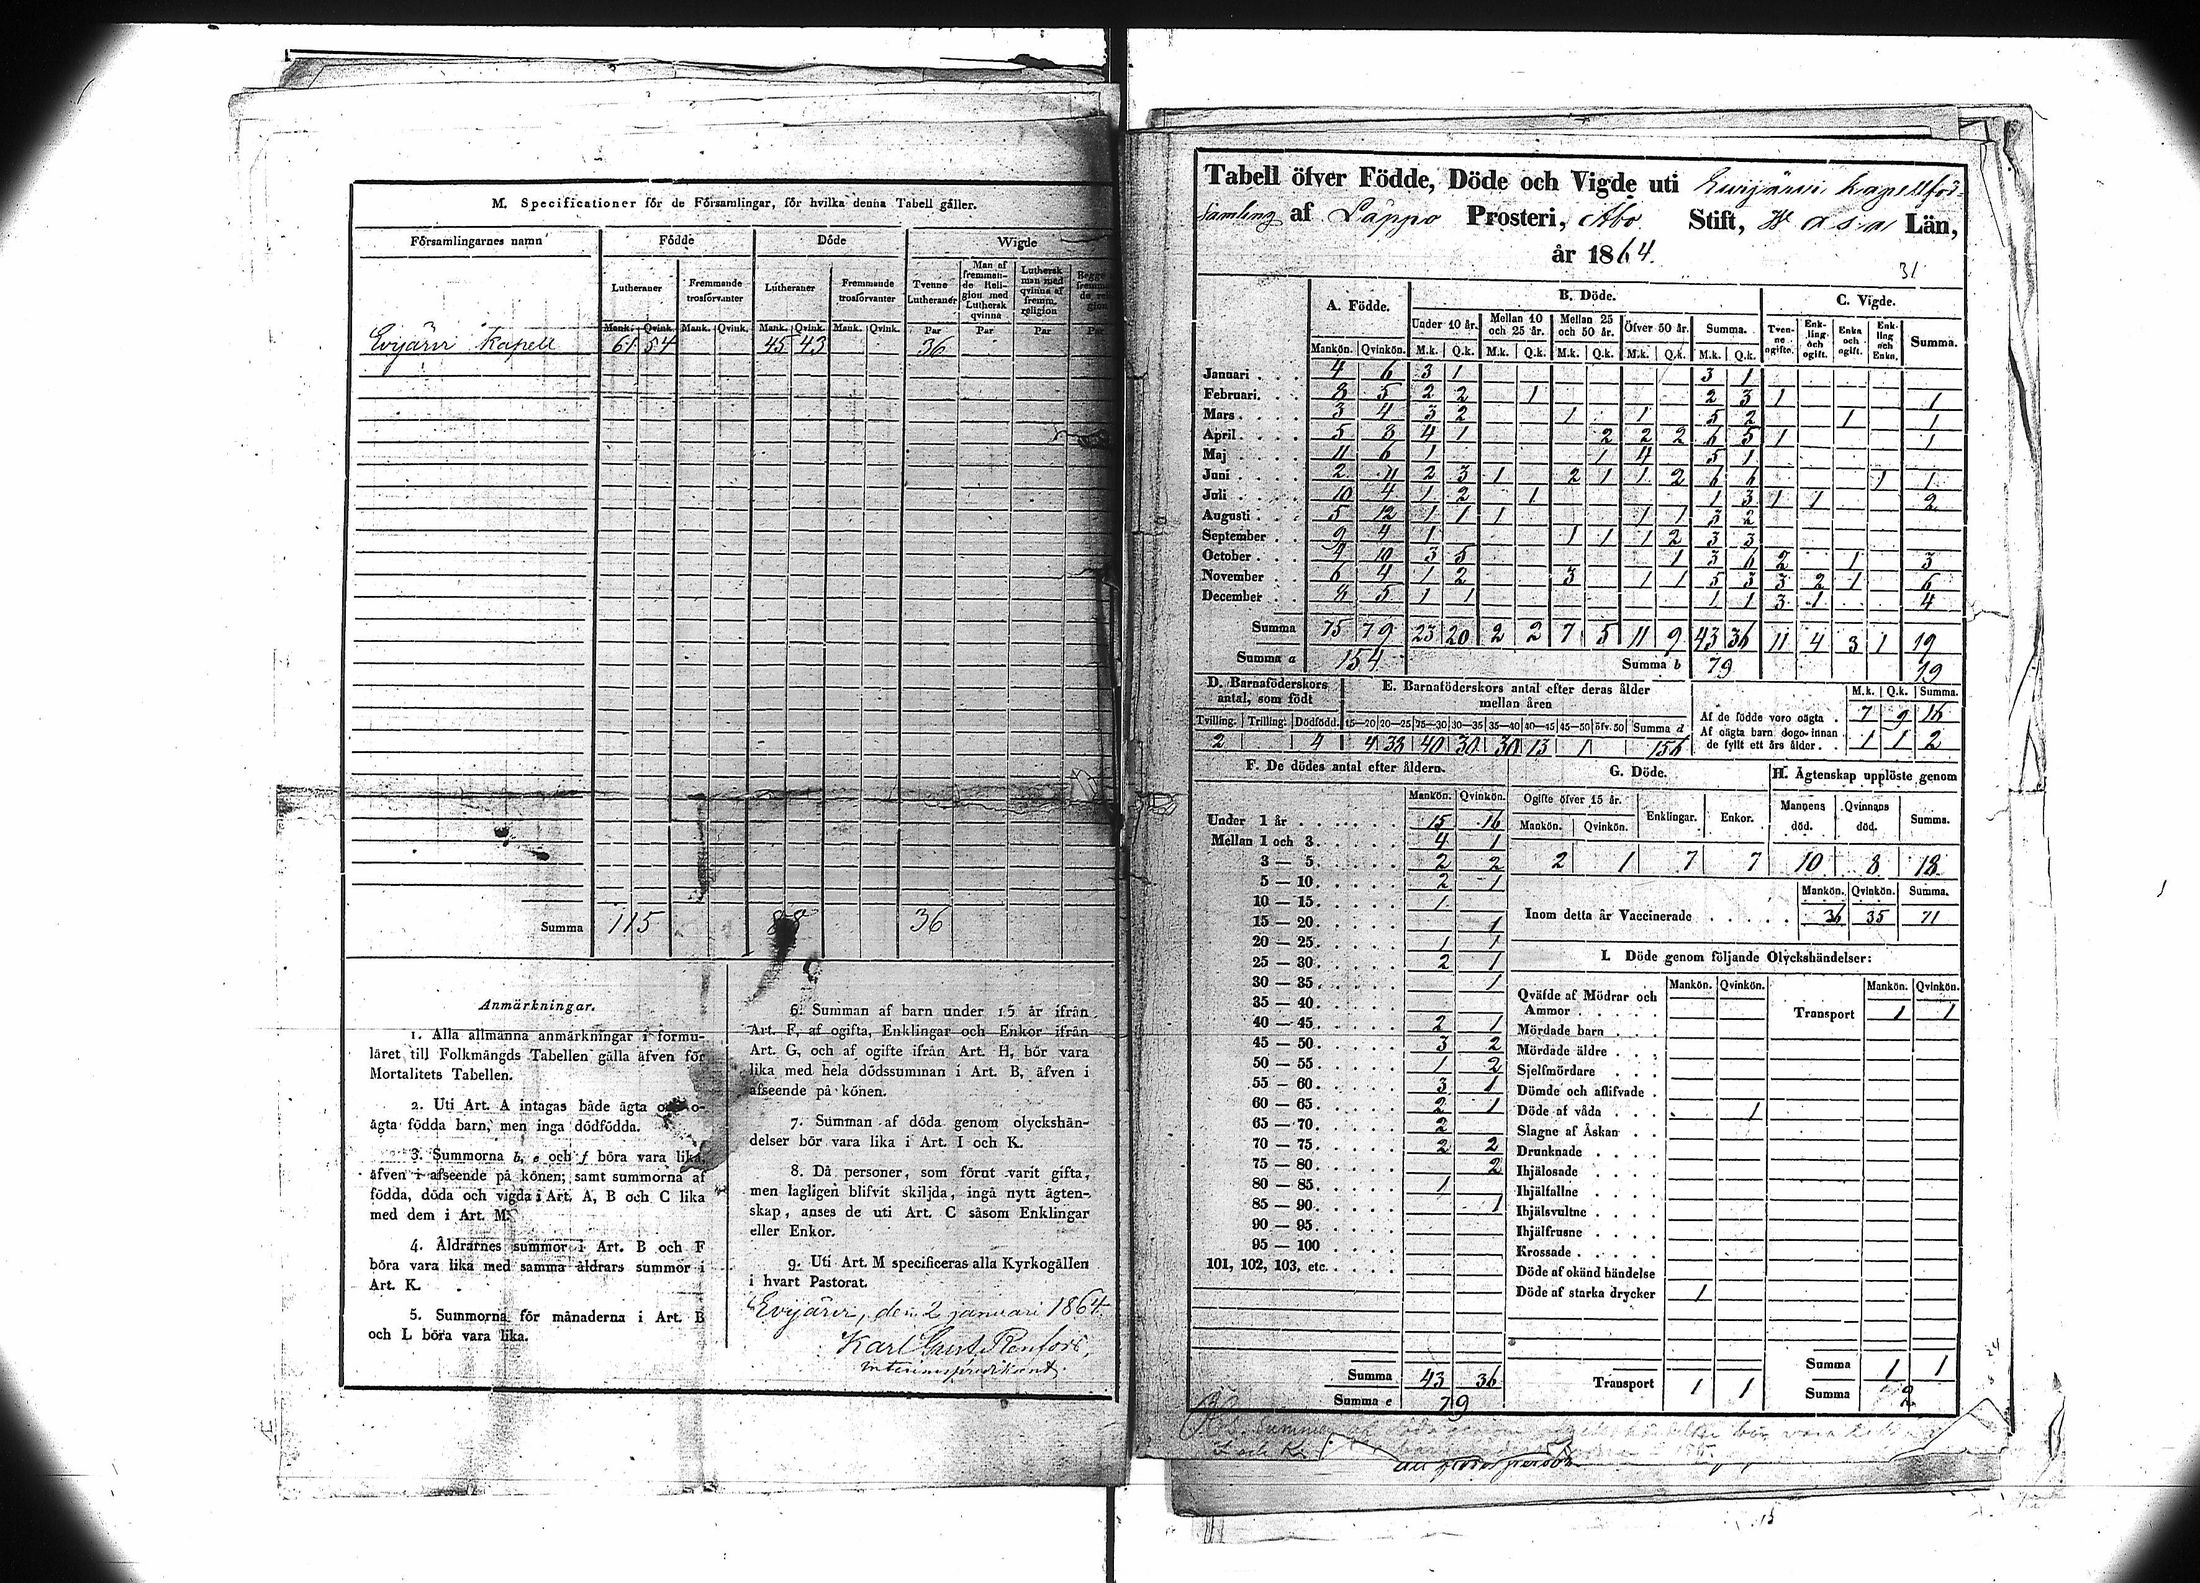 M. Specificationer för de Församlingar, för hvilka denna Tabell gäller.
Församlingarnes namn | Födde | Döde | Wigde
Lutheraner | Fremmande trosförvanter | Lutheraner | Fremmande trosförvanter | Tvenne Lutheraner | Man af fremmande Religion med Luthersk qvinna | Luthersk man med qvinna af fremm. religion | Begge
Mank. | Qvink. | Mank. | Qvink. | Mank. | Qvink. | Mank. | Qvink. | Par | Par | Par | Par
Evijärvi Kapell | 61 | 54 | 45 | 43 | 36
Summa | 115 | 88 | 36
Anmärkningar.
1. Alla allmänna anmärkningar i formu-
läret till Folkmängds Tabellen gälla äfven för
Mortalitets Tabellen.
2. Uti Art. A intagas både ägta och o-
ägta födda barn, men inga dödfödda.
3. Summorna b, e och f böra vara lika,
äfven i afseende på könen; samt summorna af
födda, döda och vigda i Art. A, B och C lika
med dem i Art. M.
4. Åldrarnes summor i Art. B och F
böra vara lika med samma åldrars summor i
Art. K.
5. Summorna för månaderna i Art. B
och L böra vara lika.
6. Summan af barn under 15 år ifrån
Art. F, af ogifta, Enklingar och Enkor ifrån
Art. G, och af ogifte ifrån Art. H, bör vara
lika med hela dödssumman i Art. B, äfven i
afseende på könen.
7. Summan af döda genom olyckshän-
delser bör vara lika i Art. I och K.
8. Då personer, som förut varit gifta,
men lagligen blifvit skiljda, ingå nytt ägten-
skap, anses de uti Art. C såsom Enklingar
eller Enkor.
9. Uti Art. M specificeras alla Kyrkogällen
i hvart Pastorat.
Evijärvi, den 2 januari 1864
Karl Gust. Renfors,
interimspredikant.
Tabell öfver Födde, Döde och Vigde uti Ewijärwi kapellför-
samling af Lappo Prosteri, Åbo Stift, Wasa Län,
år 1864.
31
A. Födde. | B. Döde. | C. Vigde.
Under 10 år. | Mellan 10 och 25 år. | Mellan 25 och 50 år. | Öfver 50 år. | Summa. | Tvenne ogifte. | Enkling och ogift. | Enka och ogift. | Enkling och Enka. | Summa.
Mankön. | Qvinkön. | M.k. | Q.k. | M.k. | Q.k. | M.k. | Q.k. | M.k. | Q.k. | M.k. | Q.k.
Januari | 4 | 6 | 3 | 1 | 3 | 1
Februari | 8 | 5 | 2 | 2 | 1 | 2 | 3 | 1 | 1
Mars | 3 | 4 | 3 | 2 | 1 | 1 | 5 | 2 | 1 | 1
April | 5 | 8 | 4 | 1 | 2 | 2 | 2 | 6 | 5 | 1 | 1
Maj | 11 | 6 | 1 | 1 | 4 | 5 | 1
Juni | 2 | 11 | 2 | 3 | 1 | 2 | 1 | 1 | 2 | 6 | 6 | 1 | 1
Juli | 10 | 4 | 1 | 2 | 1 | 1 | 3 | 1 | 1 | 2
Augusti | 5 | 12 | 1 | 1 | 1 | 1 | 1 | 3 | 2
September | 9 | 4 | 1 | 1 | 1 | 1 | 2 | 3 | 3
October | 4 | 10 | 3 | 5 | 1 | 3 | 6 | 2 | 1 | 3
November | 6 | 4 | 1 | 2 | 3 | 1 | 1 | 5 | 3 | 3 | 2 | 1 | 6
December | 8 | 5 | 1 | 1 | 1 | 1 | 3 | 1 | 4
Summa | 75 | 79 | 23 | 20 | 2 | 2 | 7 | 5 | 11 | 9 | 43 | 36 | 11 | 4 | 3 | 1 | 19
Summa a | 154 | Summa b | 79 | 19
D. Barnaföderskors antal, som födt | E. Barnaföderskors antal efter deras ålder mellan åren | M.k. | Q.k. | Summa.
Tvilling. | Trilling. | Dödfödd. | 15—20 | 20—25 | 25—30 | 30—35 | 35—40 | 40—45 | 45—50 | öfv. 50 | Summa d
2 | 4 | 4 | 38 | 40 | 30 | 30 | 13 | 1 | 156
Af de födde voro oägta | 7 | 9 | 16
Af oägta barn dogo innan de fyllt ett års ålder | 1 | 1 | 2
F. De dödes antal efter åldern.
Mankön. | Qvinkön.
Under 1 år | 15 | 16
Mellan 1 och 3 | 4 | 1
3 — 5 | 2 | 2
5 — 10 | 2 | 1
10 — 15 | 1
15 — 20 | 1
20 — 25 | 1 | 1
25 — 30 | 2 | 1
30 — 35 | 1
35 — 40
40 — 45 | 2 | 1
45 — 50 | 3 | 2
50 — 55 | 1 | 2
55 — 60 | 3 | 1
60 — 65 | 2 | 1
65 — 70 | 2
70 — 75 | 2 | 2
75 — 80 | 2
80 — 85 | 1
85 — 90 | 1
90 — 95
95 — 100
101, 102, 103, etc.
Summa | 43 | 36
Summa e | 79
G. Döde. | H. Ägtenskap upplöste genom
Ogifte öfver 15 år. | Enklingar. | Enkor. | Mannens död. | Qvinnans död. | Summa.
Mankön. | Qvinkön.
2 | 1 | 7 | 7 | 10 | 8 | 18
Mankön. | Qvinkön. | Summa.
Inom detta år Vaccinerade | 36 | 35 | 71
I. Döde genom följande Olyckshändelser:
Mankön. | Qvinkön. | Mankön. | Qvinkön.
Qväfde af Mödrar och Ammor | Transport | 1 | 1
Mördade barn
Mördade äldre
Sjelfmördare
Dömde och aflifvade
Döde af våda | 1
Slagne af Åskan
Drunknade
Ihjälosade
Ihjälfallne
Ihjälsvultne
Ihjälfrusne
Krossade
Döde af okänd händelse
Döde af starka drycker | 1
Summa | 1 | 1
Transport | 1 | 1 | Summa | 2